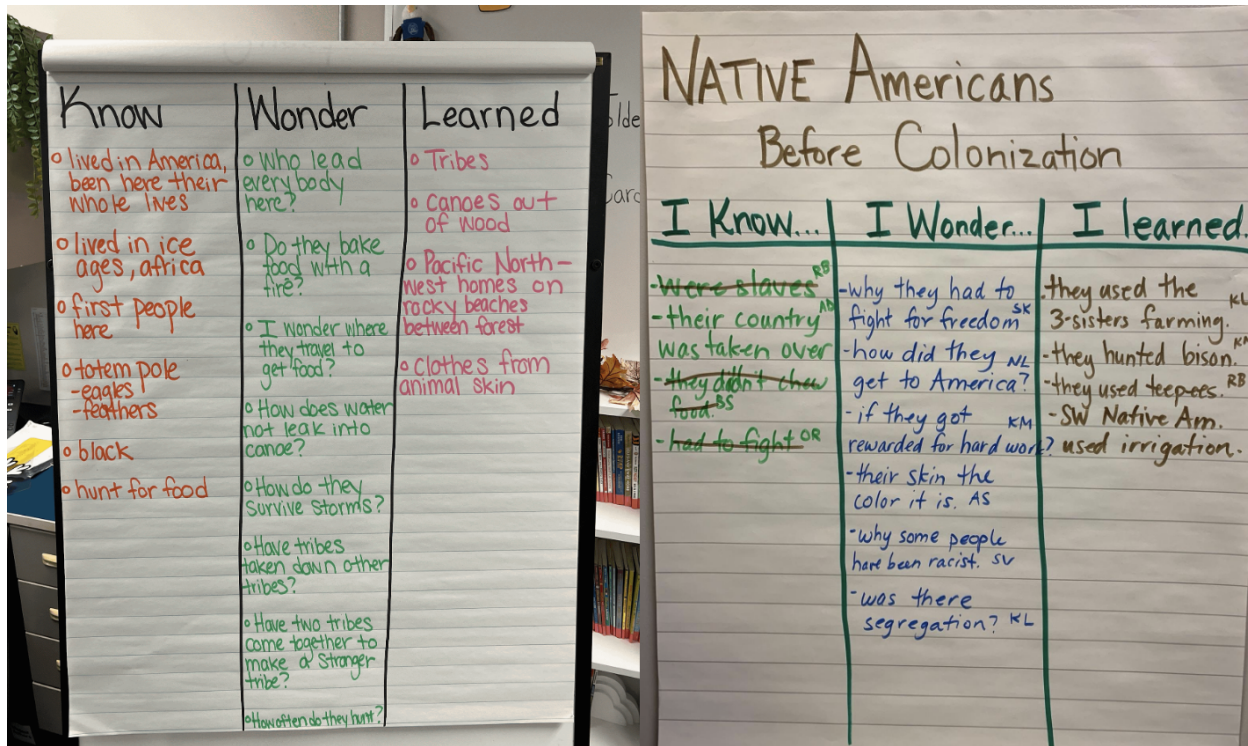 Know
o lived in America,
been here their
whole lives
o lived in ice
ages, africa
o first people
here
o totem pole
- eagles
- feathers
o black
o hunt for food
Wonder
o Who lead
everybody
here?
o Do they bake
food with a
fire?
o I wonder where
they travel to
get food?
o How does water
not leak into
canoe?
o How do they
survive storms?
o Have tribes
taken down other
tribes?
o Have two tribes
come together to
make a stronger
tribe?
o How often do they hunt?
Learned
o Tribes
o Canoes out
of wood
o Pacific North-
west homes on
rocky beaches
between forest
o Clothes from
animal skin
NATIVE Americans
Before Colonization
I Know...
- Were slaves RB
- their country AD
was taken over
- they didn't chew
food. BS
- had to fight OR
I Wonder...
- why they had to
fight for freedom SK
- how did they NL
get to America?
- if they got KM
rewarded for hard work?
- their skin the
color it is. AS
- why some people
have been racist. SV
- was there
segregation? KL
I learned.
- they used the
3-sisters farming. KL
- they hunted bison.
- they used teepees. RB
- SW Native Am.
used irrigation.